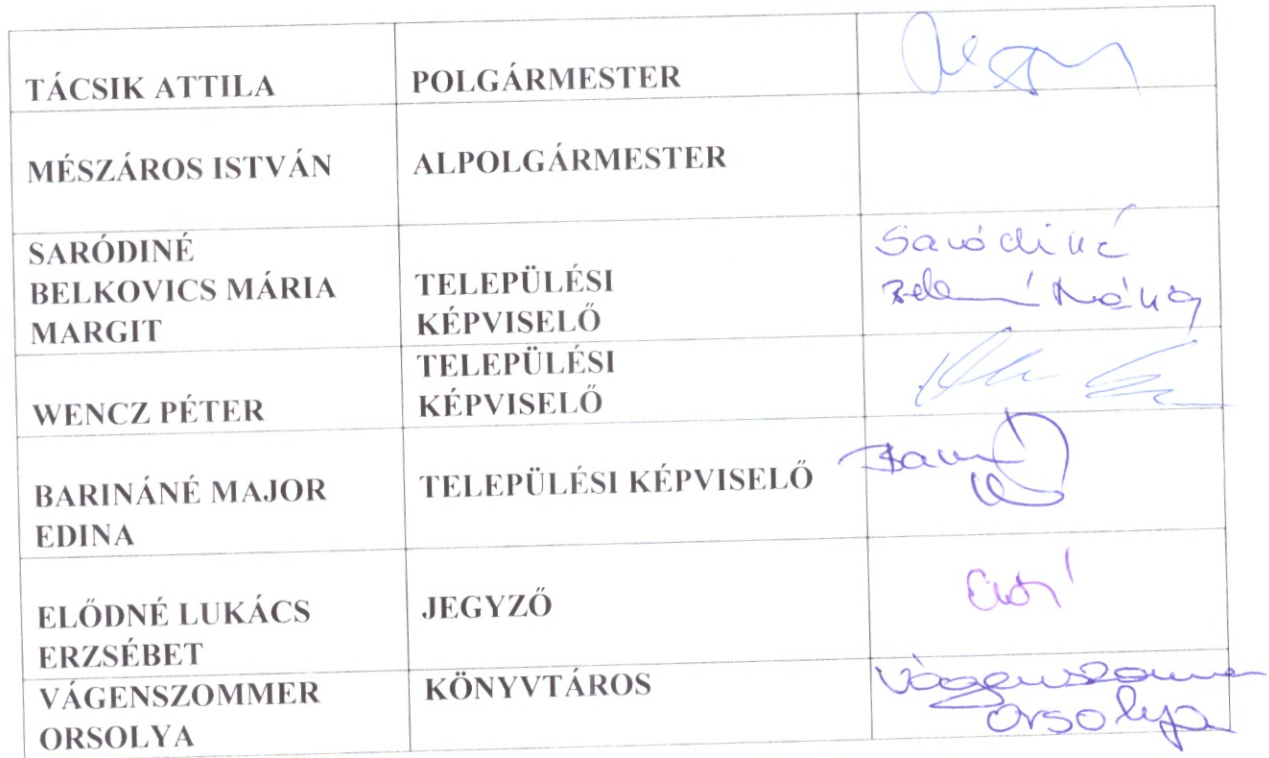 TÁCSIK ATTILA POLGÁRMESTER
MÉSZÁROS ISTVÁN ALPOLGÁRMESTER
SARÓDINÉ
BELKOVICS MÁRIA
MARGIT
TELEPÜLÉSI
KÉPVISELŐ
Saródiné
Mária
WENCZ PÉTER
TELEPÜLÉSI
KÉPVISELŐ
BARINÁNÉ MAJOR
EDINA
TELEPÜLÉSI KÉPVISELŐ
ELŐDNÉ LUKÁCS
ERZSÉBET
JEGYZŐ
VÁGENSZOMMER
ORSOLYA
KÖNYVTÁROS
Vágenszommer
Orsolya